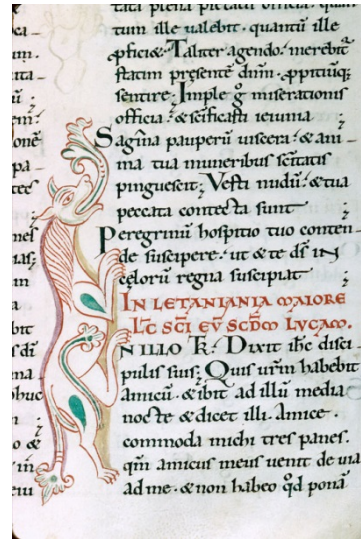 ca
m.
ita
ū
erni
onē
pa
tes
nes
ias
in
ma
a
bit
s dī
ma
o &
in
eiu
tum ille ualebit. quantū ille
pficiet. Taliter agendo. merebit
statim presentē dnm. ppitiūq;
sentire. Imple g miserationis
officia. & scificasti ieiunia.
Sagina pauperū uiscera. & ani
ma tua muneribus scitatis
pinguescit. Vesti nudū. & tua
peccata contecta sunt.
Peregrinū hospitio tuo conten
de suscipere. ut & te ds in
celorū regna suscipiat.
IN LETANIANIA MAIORE
LC SCI EV SCDM LVCAM.
N ILLO TR. Dixit ihc disci
pulis suis. Quis urm habebit
amicū. & ibit ad illū media
nocte & dicet illi. Amice
commoda michi tres panes.
qm amicus meus uenit de uia
ad me. & non habeo qd ponā